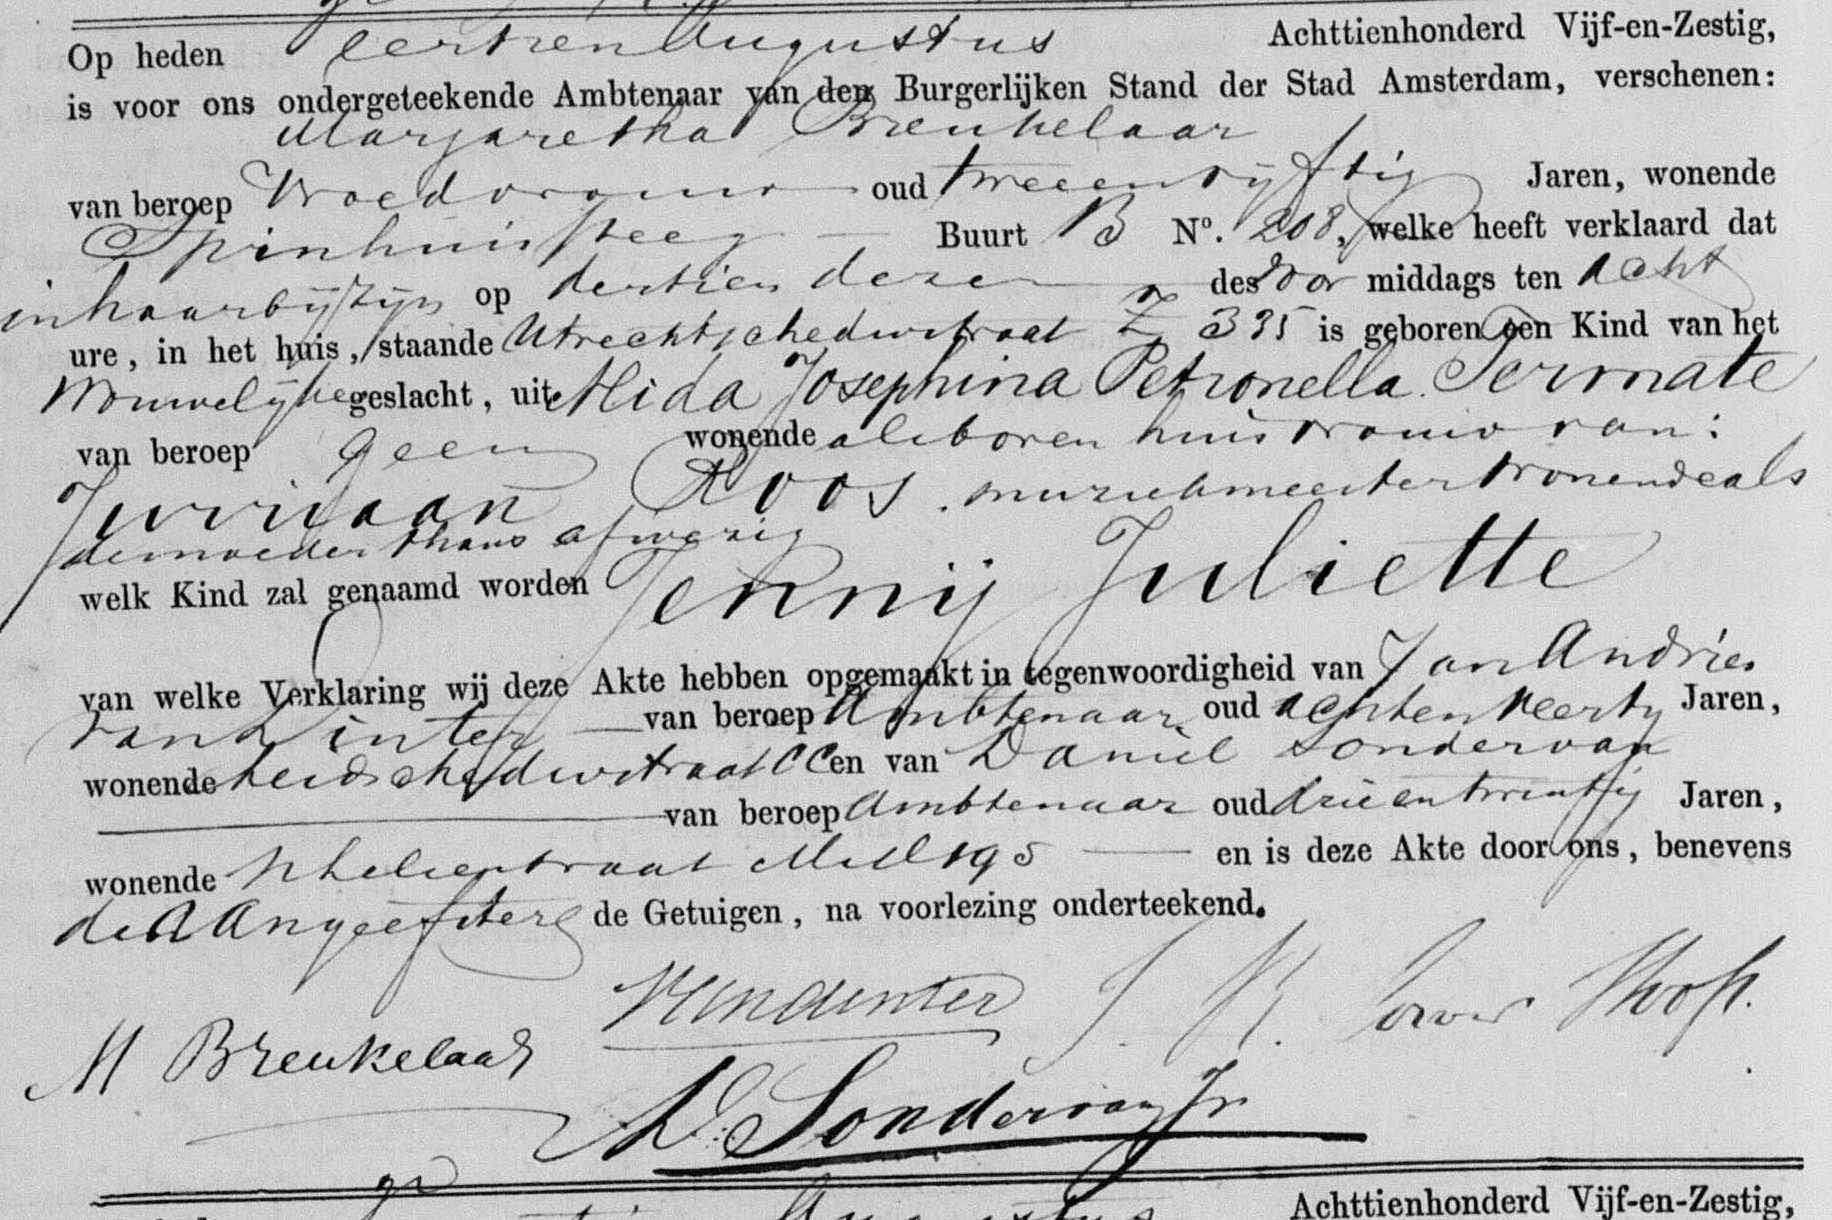 Op heden Veertien Augustus Achttienhonderd Vijf-en-Zestig,
is voor ons ondergeteekende Ambtenaar van den Burgerlijken Stand der Stad Amsterdam, verschenen:
Margaretha Breukelaar
van beroep Vroedvrouw oud tweeenvijftig Jaren, wonende
Spinhuissteeg Buurt B No. 208, welke heeft verklaard dat
in haar bijzijn op dertien dezer des voor middags ten acht
ure, in het huis, staande Utrechtschedwstraat Z 335 is geboren een Kind van het
Vrouwelijke geslacht, uit Alida Josephina Petronella Termate
van beroep geen wonende alsboven huisvrouw van:
Jurriaan Roos. muziekmeester wonende als
de moeder thans afwezig
welk Kind zal genaamd worden Jennij Juliette
van welke Verklaring wij deze Akte hebben opgemaakt in tegenwoordigheid van Jan Andries
van Dinter van beroep Ambtenaar oud achtenveertig Jaren,
wonende Leidschedwstraat CC en van Daniel Sondervan
van beroep Ambtenaar oud drieentwintig Jaren,
wonende 195 en is deze Akte door ons, benevens
de Aangeefster & de Getuigen, na voorlezing onderteekend.
VanDinter J.
M Breukelaar
D. Sondervan Jr.
Augustus Achttienhonderd Vijf-en-Zestig,